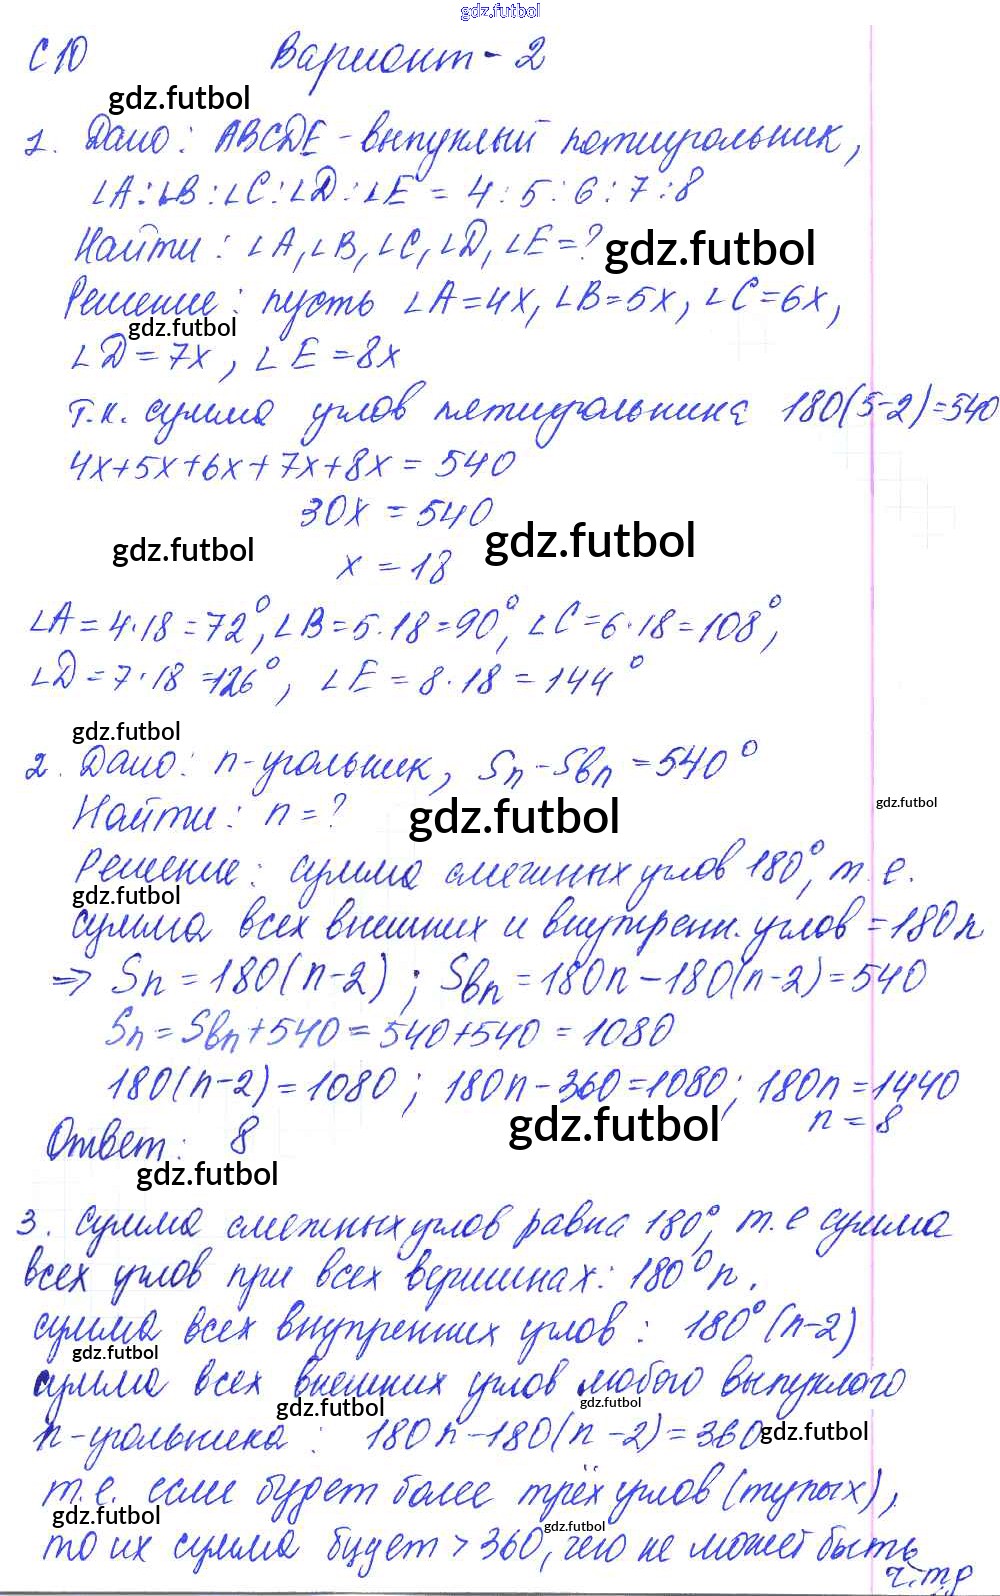 gdz.futbol
С10 Вариант - 2
gdz.futbol
1. Дано: ABCDE - выпуклый пятиугольник,
∠A:∠B:∠C:∠D:∠E = 4:5:6:7:8
Найти: ∠A, ∠B, ∠C, ∠D, ∠E = ? gdz.futbol
Решение: пусть ∠A = 4x, ∠B = 5x, ∠C = 6x,
gdz.futbol
∠D = 7x, ∠E = 8x
т.к. сумма углов пятиугольника 180(5-2)=540
4x+5x+6x+7x+8x = 540
30x = 540
gdz.futbol gdz.futbol
x = 18
∠A = 4·18 = 72°, ∠B = 5·18 = 90°, ∠C = 6·18 = 108°,
∠D = 7·18 = 126°, ∠E = 8·18 = 144°
gdz.futbol
2. Дано: n-угольник, Sn - Sвn = 540°
gdz.futbol
Найти: n = ? gdz.futbol
Решение: сумма смежных углов 180°, т.е.
gdz.futbol
сумма всех внешних и внутренн. углов = 180n
=> Sn = 180(n-2); Sвn = 180n - 180(n-2) = 540
Sn = Sвn + 540 = 540 + 540 = 1080
180(n-2) = 1080; 180n - 360 = 1080; 180n = 1440
gdz.futbol n = 8
Ответ: 8
gdz.futbol
3. Сумма смежных углов равна 180°, т.е сумма
всех углов при всех вершинах: 180°n.
сумма всех внутренних углов: 180°(n-2)
gdz.futbol
сумма всех внешних углов любого выпуклого
gdz.futbol gdz.futbol
n-угольника: 180n - 180(n-2) = 360 gdz.futbol
т.е. если будет более трёх углов (тупых),
gdz.futbol gdz.futbol
то их сумма будет > 360, чего не может быть
ч.тр